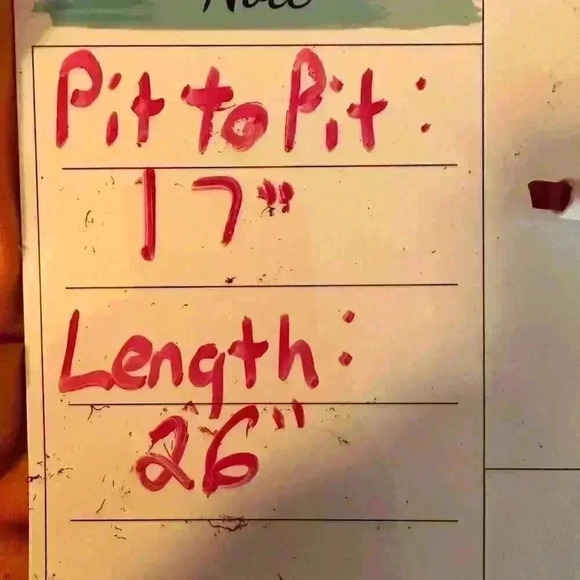 Note
Pit to Pit:
17"
Length:
26"